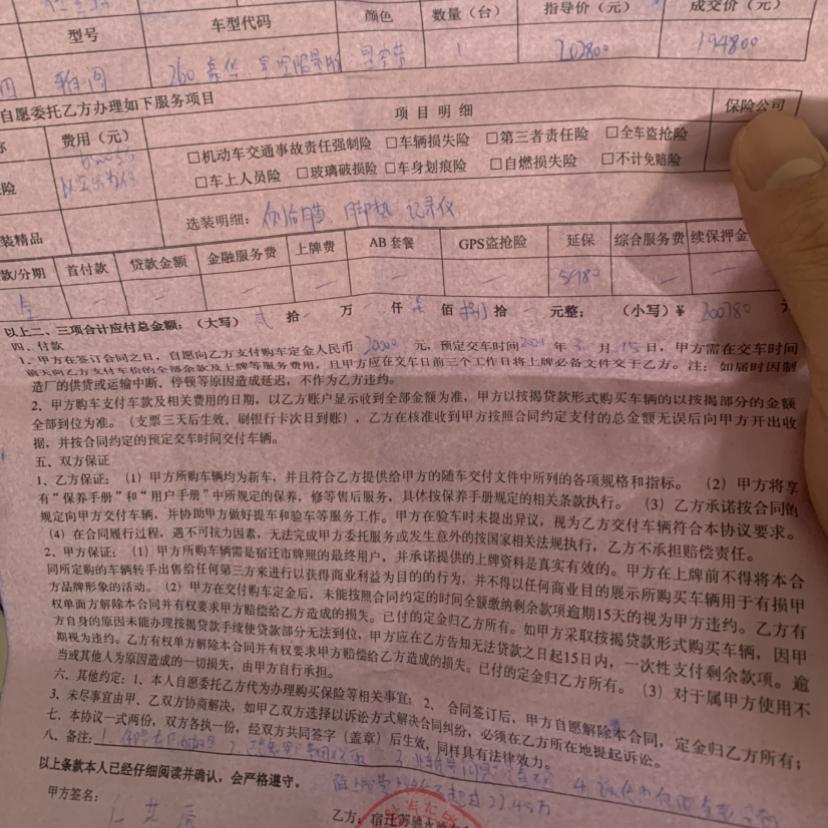 型号 车型代码 颜色 数量（台） 指导价（元） 成交价（元）
雅阁 260 豪华 星空 1 202800 194800
自愿委托乙方办理如下服务项目
费用（元） 项目明细 保险公司
险 □机动车交通事故责任强制险 □车辆损失险 □第三者责任险 □全车盗抢险
□车上人员险 □玻璃破损险 □车身划痕险 □自燃损失险 □不计免赔险
装精品 选装明细： 脚垫 记录仪
款/分期 首付款 贷款金额 金融服务费 上牌费 AB 套餐 GPS盗抢险 延保 综合服务费 续保押金
5980
以上二、三项合计应付总金额：（大写） 贰 拾 万 仟 柒 佰 捌 拾 元整： （小写）¥ 200780 元
四、付款
1、甲方在签订合同之日，自愿向乙方支付购车定金人民币 元，预定交车时间 年 3 月 15 日，甲方需在交车时间
前天向乙方支付车价的全部余款及上牌等服务费用，且甲方应在交车日前三个工作日将上牌必备文件交于乙方。注：如届时因制
造厂的供货或运输中断、停顿等原因造成延迟，不作为乙方违约。
2、甲方购车支付车款及相关费用的日期，以乙方账户显示收到全部金额为准，甲方以按揭贷款形式购买车辆的以按揭部分的金额
全部到位为准。（支票三天后生效、刷银行卡次日到账），乙方在核准收到甲方按照合同约定支付的总金额无误后向甲方开出收
据，并按合同约定的预定交车时间交付车辆。
五、双方保证
1、乙方保证：（1）甲方所购车辆均为新车，并且符合乙方提供给甲方的随车交付文件中所列的各项规格和指标。（2）甲方将享
有“保养手册”和“用户手册”中所规定的保养，修等售后服务，具体按保养手册规定的相关条款执行。（3）乙方承诺按合同的
规定向甲方交付车辆，并协助甲方做好提车和验车等服务工作。甲方在验车时未提出异议，视为乙方交付车辆符合本协议要求。
（4）在合同履行过程，遇不可抗力因素，无法完成甲方委托服务或发生意外的按国家相关法规执行，乙方不承担赔偿责任。
2、甲方保证：（1）甲方所购车辆需是宿迁市牌照的最终用户，并承诺提供的上牌资料是真实有效的。甲方在上牌前不得将本合
同所定购的车辆转手出售给任何第三方来进行以获得商业利益为目的的行为，并不得以任何商业目的展示所购买车辆用于有损甲
方品牌形象的活动。（2）甲方在交付购车定金后，未能按照合同约定的时间全额缴纳剩余款项逾期15天的视为甲方违约。乙方有
权单方面解除本合同并有权要求甲方赔偿给乙方造成的损失。已付的定金归乙方所有。如甲方采取按揭贷款形式购买车辆，因甲
方自身的原因未能办理按揭贷款手续使贷款部分无法到位，甲方应在乙方告知无法贷款之日起15日内，一次性支付剩余款项。逾
期视为违约。乙方有权单方解除本合同并有权要求甲方赔偿给乙方造成的损失。已付的定金归乙方所有。（3）对于属甲方使用不
当或其他人为原因造成的一切损失，由甲方自行承担。
六、其他约定：1、本人自愿委托乙方代为办理购买保险等相关事宜；2、合同签订后，甲方自愿解除本合同，定金归乙方所有；
3、未尽事宜由甲、乙双方协商解决，如甲乙双方选择以诉讼方式解决合同纠纷，必须在乙方所在地提起诉讼。
七、本协议一式两份，双方各执一份，经双方共同签字（盖章）后生效，同样具有法律效力。
八、备注：1. 2. 3. 4.
以上条款本人已经仔细阅读并确认，会严格遵守。
甲方签名：
乙方：宿迁苏